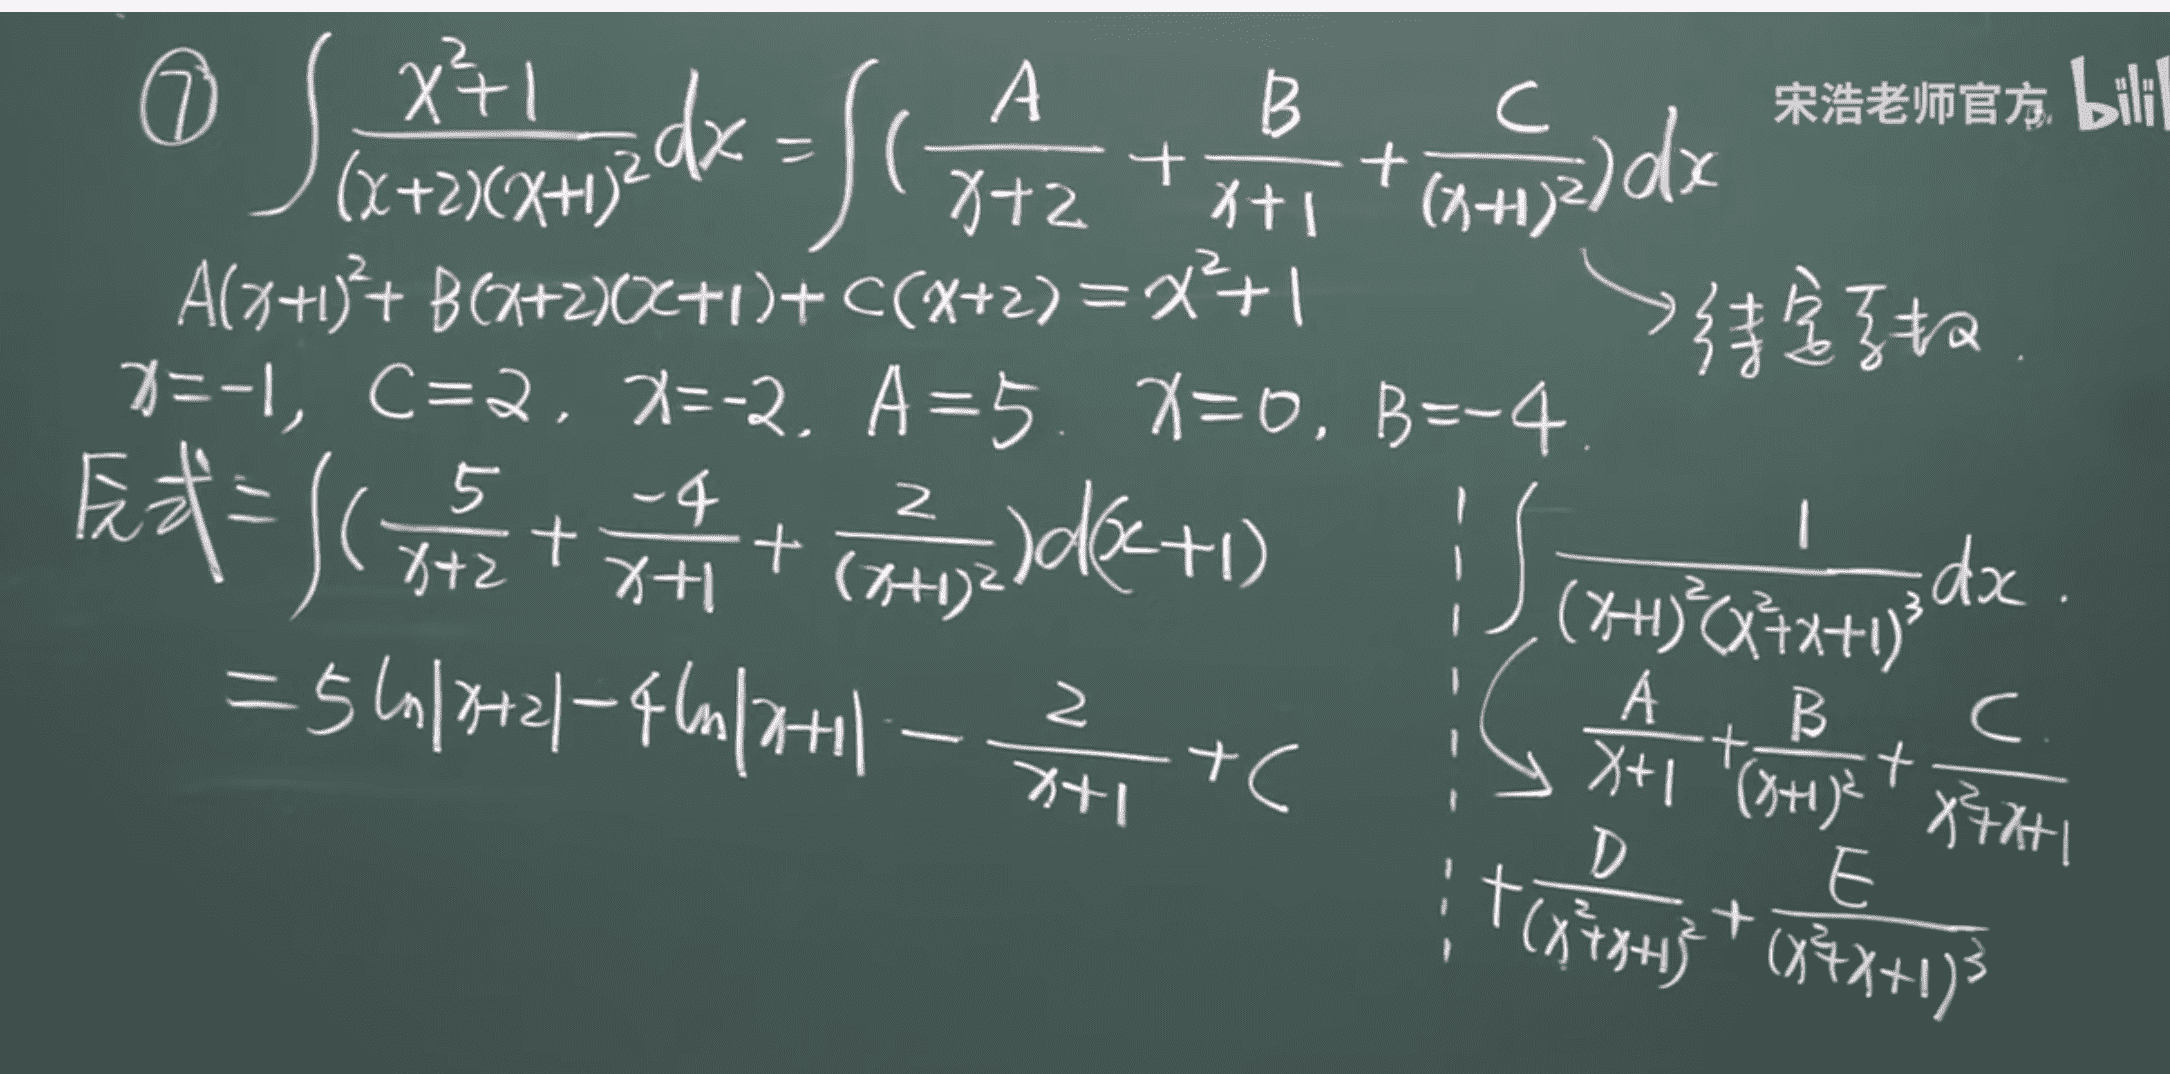 ⑦ ∫ (x²+1)/((x+2)(x+1)²) dx = ∫( A/(x+2) + B/(x+1) + C/(x+1)² )dx
宋浩老师官方 bili
A(x+1)²+ B(x+2)(x+1)+ C(x+2) = x²+1
→ 待定系数.
x=-1, C=2. x=-2. A=5. x=0, B=-4.
原式= ∫( 5/(x+2) + -4/(x+1) + 2/(x+1)² )d(x+1)
= 5 ln|x+2| - 4 ln|x+1| - 2/(x+1) + C
∫ 1/((x+1)²(x²+x+1)³) dx.
A/(x+1) + B/(x+1)² + C/(x²+x+1)
+ D/(x²+x+1)² + E/(x²+x+1)³